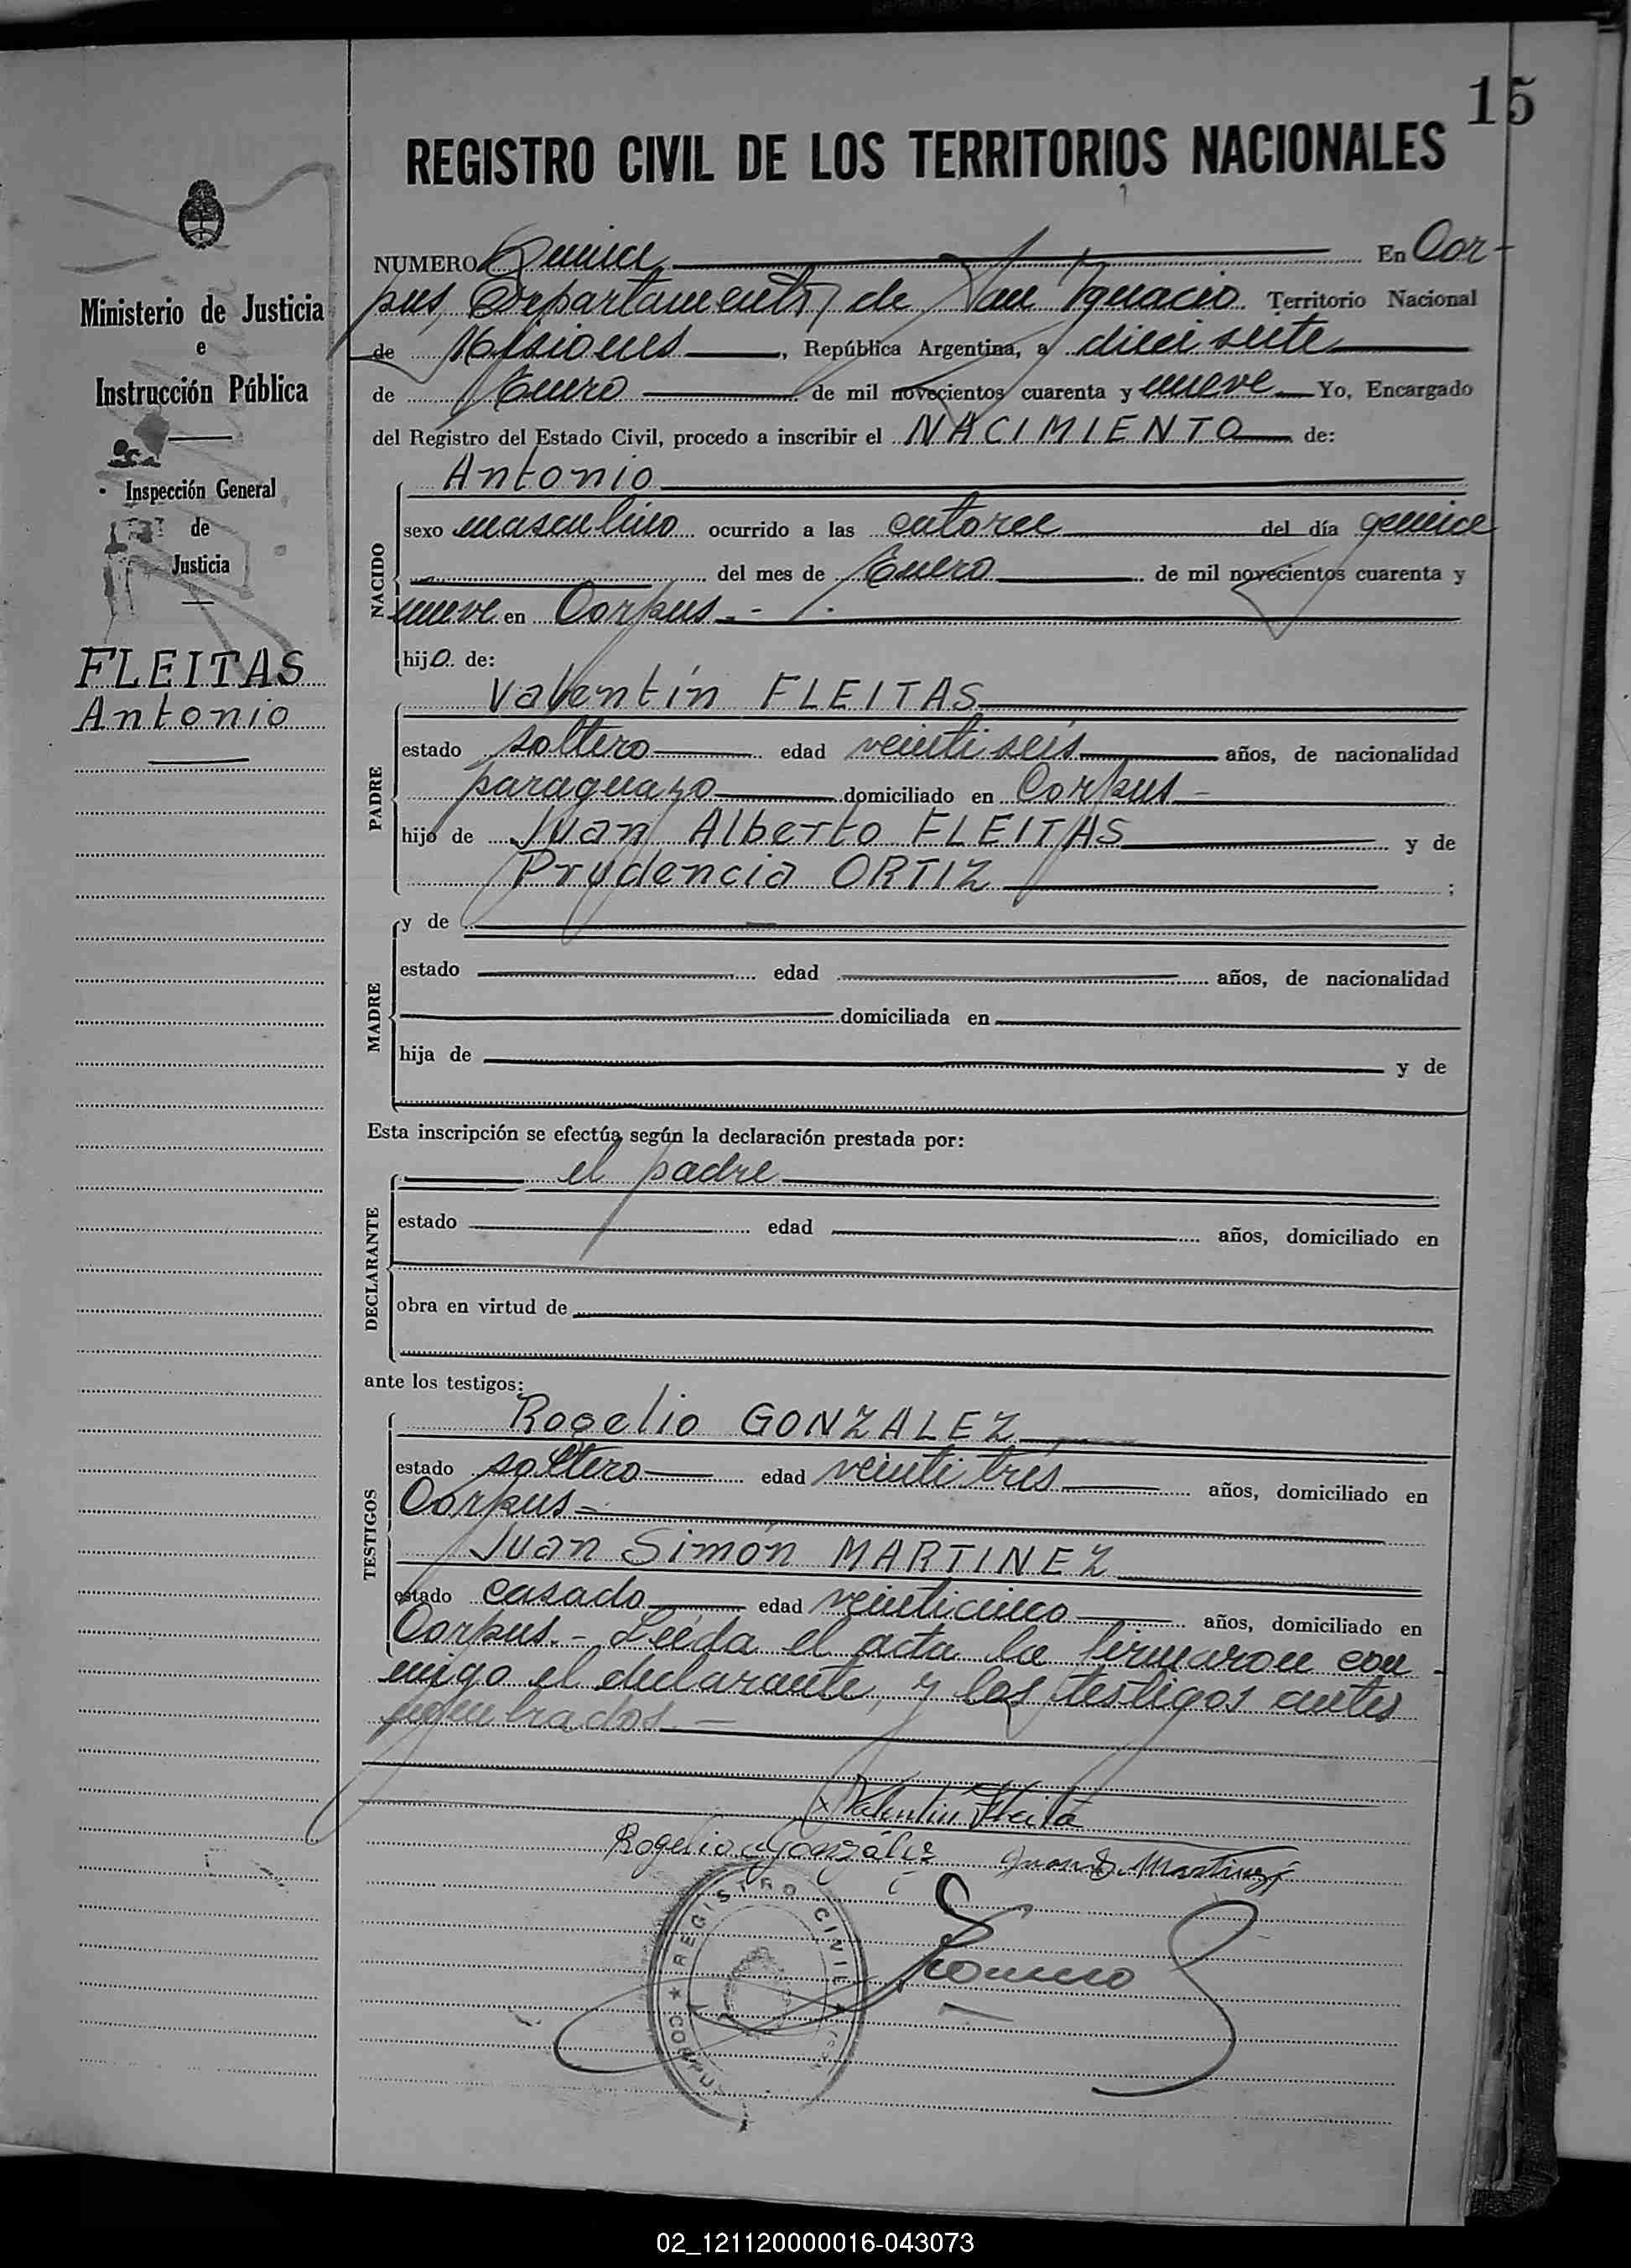 15
REGISTRO CIVIL DE LOS TERRITORIOS NACIONALES
Ministerio de Justicia
e
Instrucción Pública
Inspección General
de
Justicia
FLEITAS
Antonio
NUMERO Quince En Cor-
pus, Departamento de San Ignacio Territorio Nacional
de Misiones, República Argentina, a diecisiete
de Enero de mil novecientos cuarenta y nueve Yo, Encargado
del Registro del Estado Civil, procedo a inscribir el NACIMIENTO de:
NACIDO
Antonio
sexo masculino ocurrido a las catorce del día quince
del mes de Enero de mil novecientos cuarenta y
nueve en Corpus.-
hijo de:
PADRE
Valentín FLEITAS
estado soltero edad veintiseis años, de nacionalidad
paraguayo domiciliado en Corpus-
hijo de Juan Alberto FLEITAS y de
Prudencia ORTIZ;
MADRE
y de
estado edad años, de nacionalidad
domiciliada en
hija de y de
Esta inscripción se efectúa según la declaración prestada por:
DECLARANTE
el padre
estado edad años, domiciliado en
obra en virtud de
ante los testigos:
TESTIGOS
Rogelio GONZALEZ
estado soltero edad veintitrés años, domiciliado en
Corpus-
Juan Simón MARTINEZ
estado casado edad veinticinco años, domiciliado en
Corpus.- Leéda el acta la firmaron con-
migo el declarante, y los testigos antes
nombrados.-
Valentin Fleita
Rogelio González Juan S. Martinez
Romero
REGISTRO CIVIL
CORPUS
02_121120000016-043073